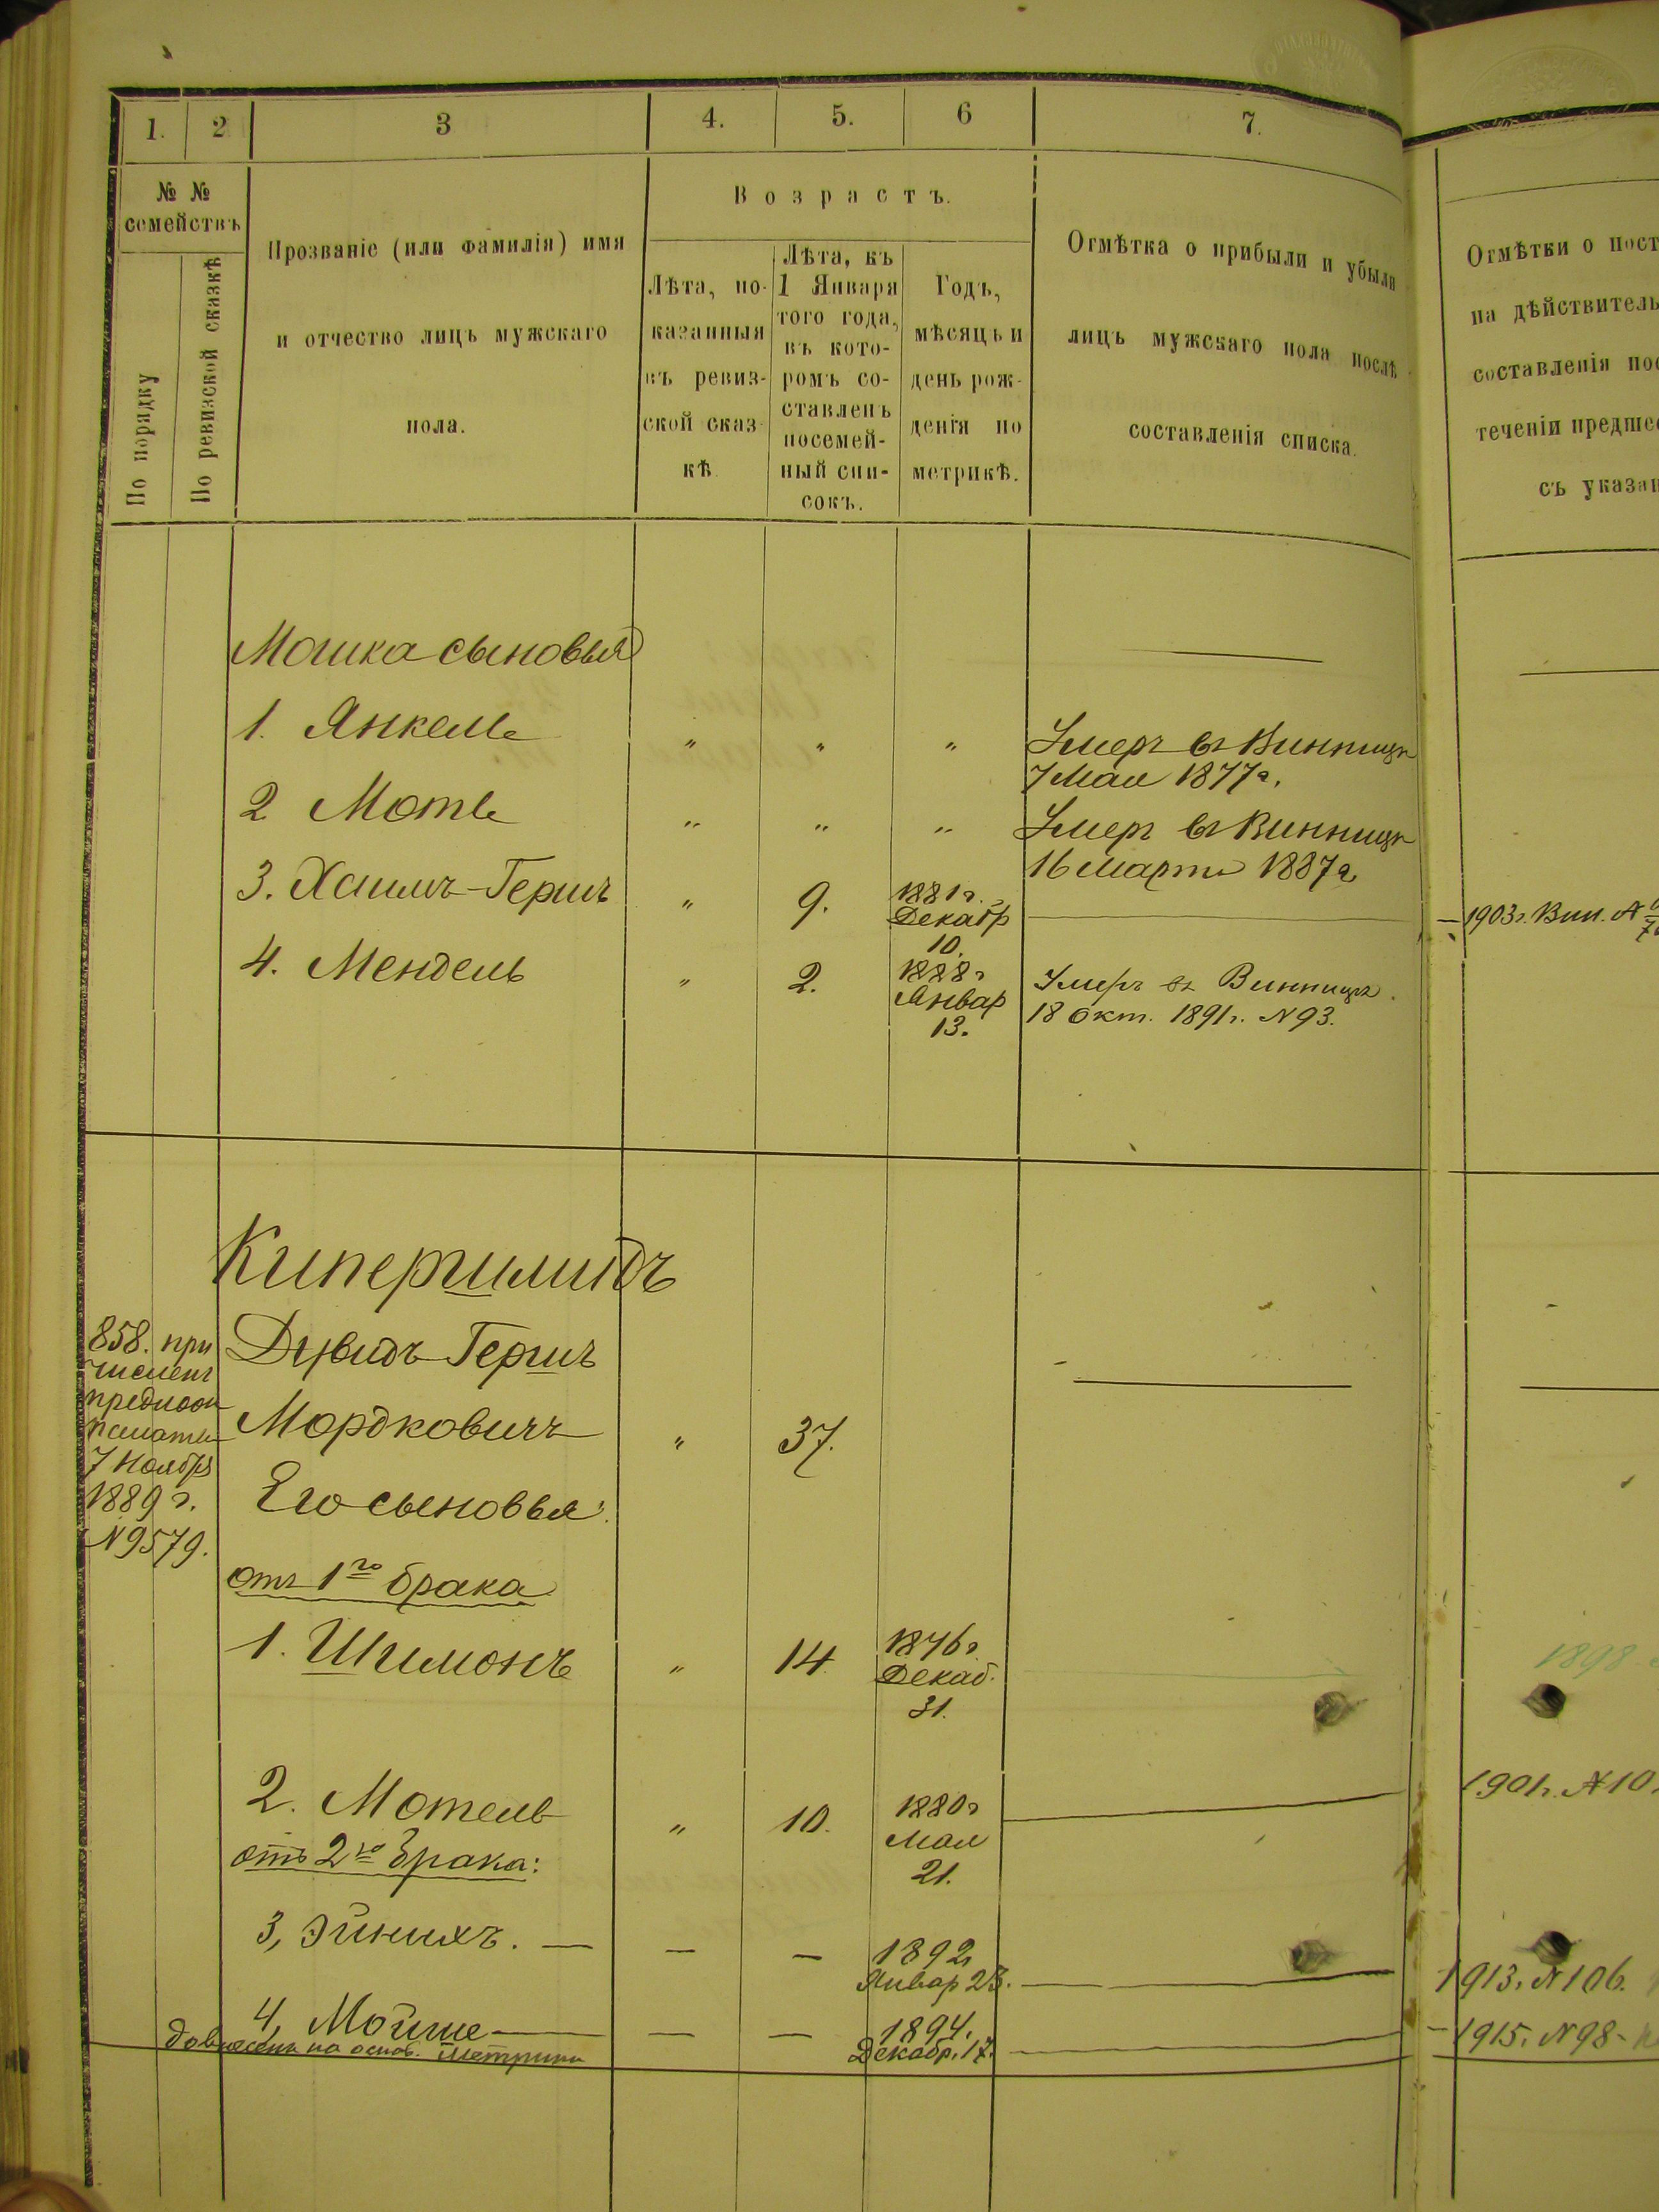 1. 2 3 4. 5. 6 7.
№ № семействъ
По порядку
По ревизской сказкѣ
Прозваніе (или фамилія) имя
и отчество лицъ мужскаго
пола.
Возрастъ.
Лѣта, по-
казанныя
въ ревиз-
ской сказ-
кѣ.
Лѣта, къ
1 Января
того года,
въ кото-
ромъ со-
ставленъ
посемей-
ный спи-
сокъ.
Годъ,
мѣсяцъ и
день рож-
денія по
метрикѣ.
Отмѣтка о прибыли и убыли
лицъ мужскаго пола послѣ
составленія списка.
Отмѣтки о пост
на дѣйствитель
составленія пос
теченіи предшес
съ указан
Мошка сыновья
1. Янкель " " " Умеръ въ Винницѣ
7 Мая 1877 г.
2 Моть " " " Умеръ въ Винницѣ
16 Марта 1887 г.
3. Хаимъ-Гершъ " 9. 1881 г.
Декабр
10.
1903 г. Вин. №
4. Мендель " 2. 1888 г
Январ
13.
Умеръ въ Винницѣ.
18 Окт. 1891 г. N 93.
Кипершмидъ
858. при
численъ
предпис
палаты
7 Ноября
1889 г.
N 9579.
Дувидъ-Гершъ
Мордковичъ " 37.
Его сыновья:
отъ 1го брака
1. Шимонъ " 14 1876 г.
Декаб.
31.
1898
2. Мотель " 10. 1880 г
Мая
21.
1901 г. № 10
отъ 2го брака:
3, Эйнихъ. — — — 1892
Январ 23.
1913. N 106.
4, Мойше — — — 1894.
Декабр. 17.
1915. N 98-
довнесенъ на основ. метрики